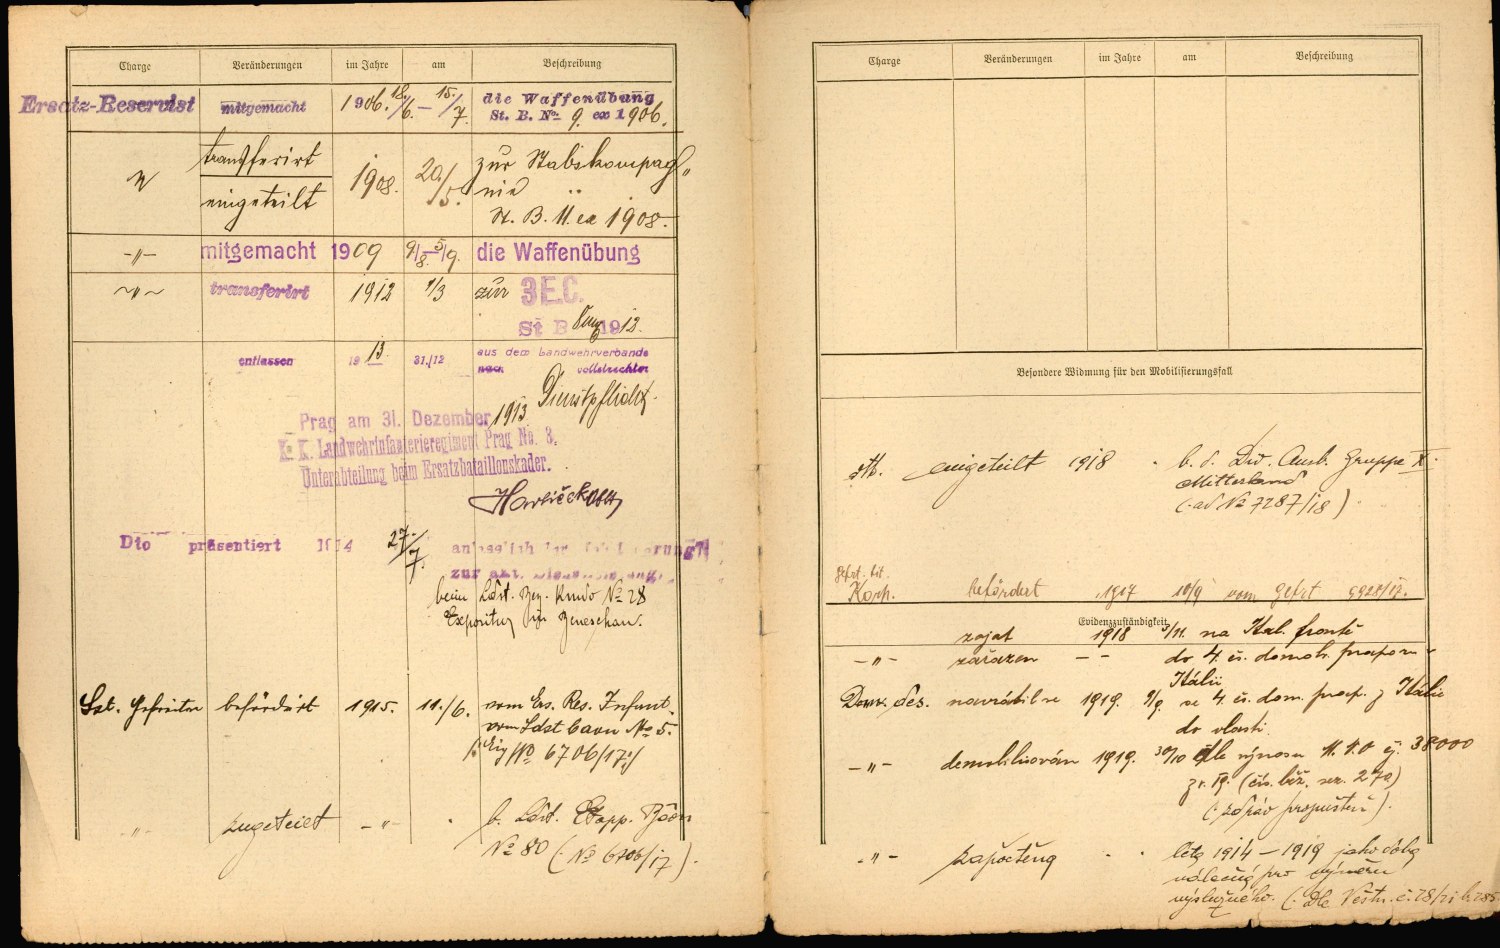 Charge Veränderungen im Jahre am Beschreibung
Ersatz-Reservist mitgemacht 1906. 18./6. – 15./7. die Waffenübung
St. B. No 9. ex 1906.
transferirt
eingeteilt 1908. 20./5. zur Stabskompag„
nie
St. B. 11. ex 1908.
-„- mitgemacht 1909 9/8. – 5/9. die Waffenübung
~„~ transferirt 1912 1/3 zur 3 E.C.
St B 1912.
entlassen 1913. 31./12 aus dem Landwehrverbande
nach vollstreckter
Dienstpflicht.
Prag am 31. Dezember 1913
K. K. Landwehrinfanterieregiment Prag No. 8.
Unterabteilung beim Ersatzbataillonskader.
Dto präsentiert 1914 27./7.
zur akt.
beim Ldst. Bez. Kmdo No 28
Expositur in Beneschau.
Lst. Gefreiter befördert 1915. 11./6. vom Ers. Res. Infant.
vom Ldst baon No 5.
No 6706/17.
-„- zugeteilt -„- b. Ldst. Etapp. Baon
No 80 (: No 6706/17 ).
Charge Veränderungen im Jahre am Beschreibung
Besondere Widmung für den Mobilisierungsfall
eingeteilt 1918 b. d. Div. Ausb. Gruppe X
Mitterland
(: ad No 7287/18 )
Gefrt. tit.
Korp. befördert 1917 10/9 vom Gefrt 9928/17.
Evidenzzuständigkeit
zajat 1918 3/11. na Ital. frontě
-„- zařazen - - do 4. čs. domob. praporu v
Itálii
des. navrátil se 1919. 9/9. se 4. čs. dom. prap. z Itálie
do vlasti.
-„- demobilisován 1919. 30/10 dle výnosu M.N.O čj. 38000
z r. 19. (čís. běž. sez. 270)
(: zdráv propuštěn ).
-„- započtěna léta 1914 – 1919 jako doba
válečná pro výměru
výslužného. (: dle Věstn. č. 28/21 b. 285